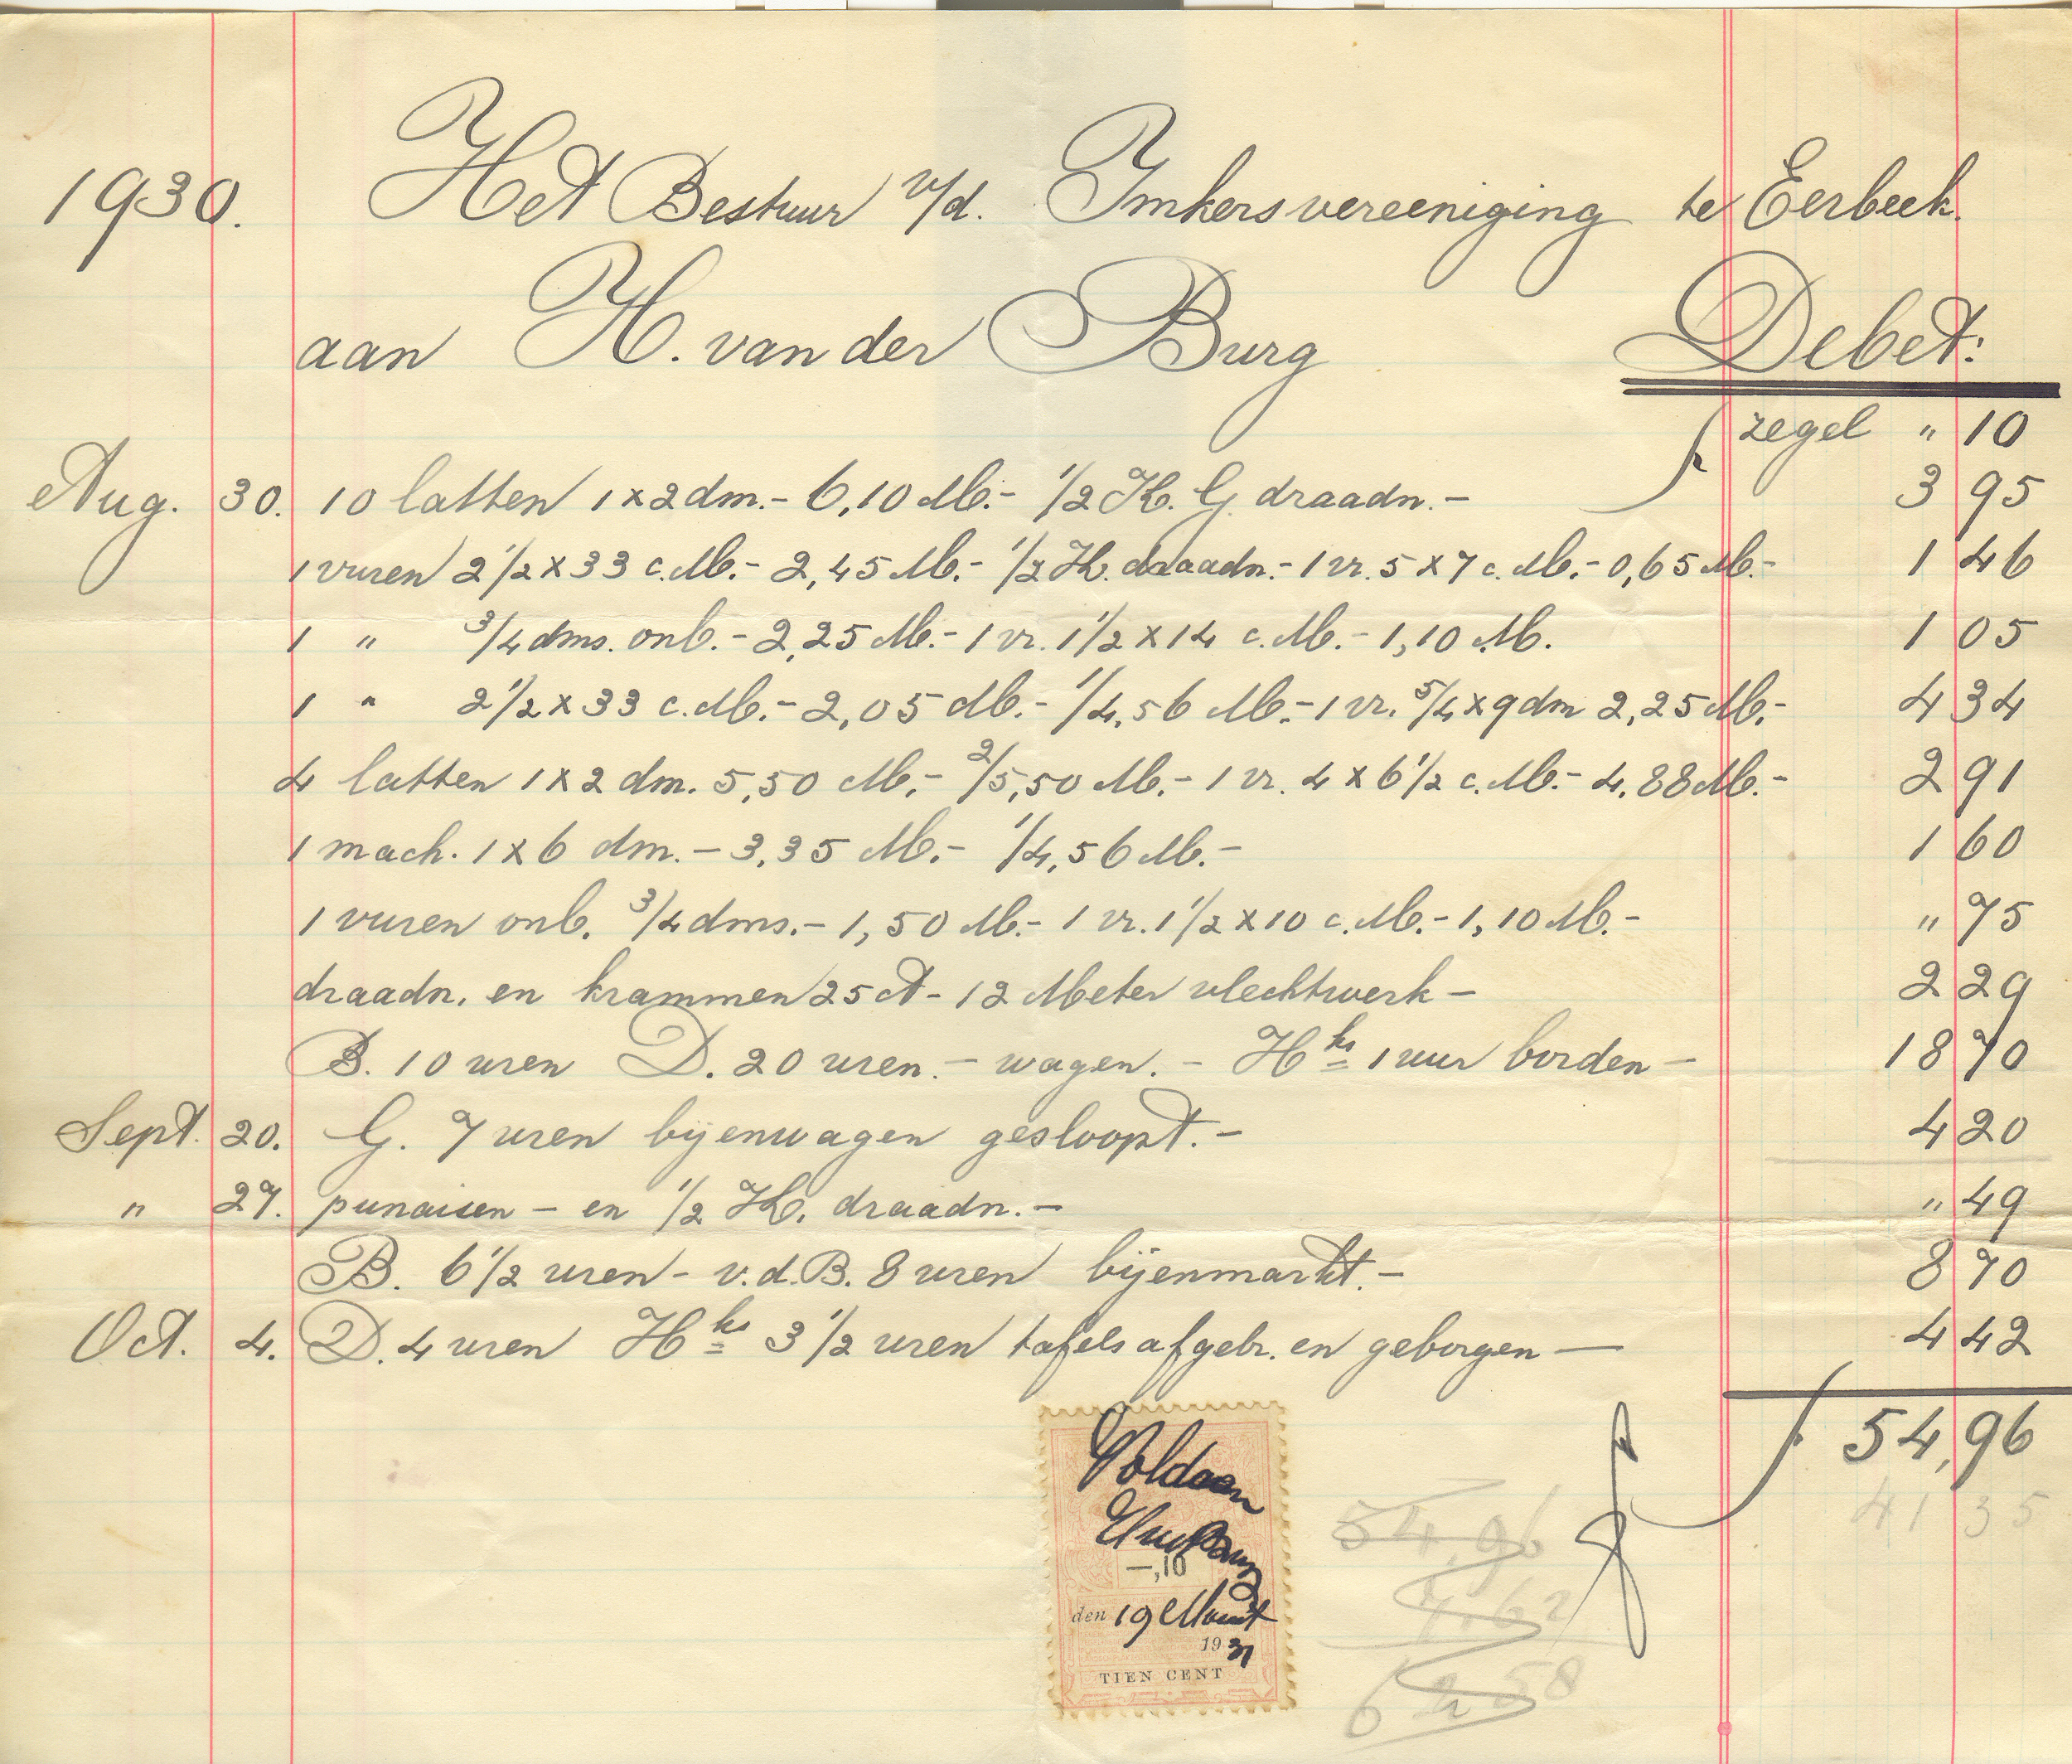 1930. Het Bestuur v/d. Imkersvereeniging te Eerbeek.
aan H. van der Burg Debet:
f zegel " 10
Aug. 30. 10 latten 1 x 2 dm. - 6,10 M. - 1/2 K. G. draadn. - 3 95
1 vuren 2 1/2 x 33 c.M. - 2,45 M. - 1/2 K. draadn. - 1 vr. 5 x 7 c.M. - 0,65 M. - 1 46
1 " 3/4 dms. onb. - 2,25 M. - 1 vr. 1 1/2 x 14 c.M. - 1,10 M. 1 05
1 " 2 1/2 x 33 c.M. - 2,05 M. - 1/4,56 M. - 1 vr. 5/4 x 9 dm 2,25 M. - 4 34
4 latten 1 x 2 dm. 5,50 M. - 2/5,50 M. - 1 vr. 4 x 6 1/2 c.M. - 4,88 M. - 2 91
1 mach. 1 x 6 dm. - 3,35 M. - 1/4,56 M. - 1 60
1 vuren onb. 3/4 dms. - 1,50 M. - 1 vr. 1 1/2 x 10 c.M. - 1,10 M. - " 75
draadn. en krammen 25 ct - 12 Meter vlechtwerk - 2 29
B. 10 uren D. 20 uren. - wagen. - Hks 1 uur borden - 18 70
Sept. 20. G. 7 uren bijenwagen gesloopt. - 4 20
" 27. punaisen - en 1/2 K. draadn. - " 49
B. 6 1/2 uren - v.d.B. 8 uren bijenmarkt. - 8 70
Oct. 4. D. 4 uren Hks 3 1/2 uren tafels afgebr. en geborgen - 4 42
f 54,96
41 35
Voldaan
-,10
den 19 Maart
1931
TIEN CENT
54,96
7,62
62 58